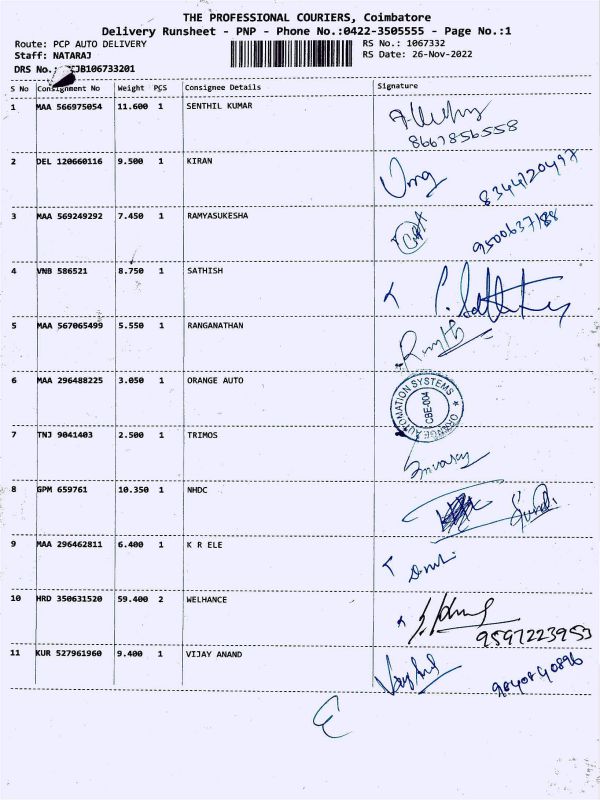 THE PROFESSIONAL COURIERS, Coimbatore
Delivery Runsheet - PNP - Phone No.:0422-3505555 - Page No.:1
Route: PCP AUTO DELIVERY
RS No.: 1067332
Staff: NATARAJ
RS Date: 26-Nov-2022
DRS No. JB106733201
S No Consignment No Weight PCS Consignee Details Signature
1 MAA 566975054 11.600 1 SENTHIL KUMAR
8667856558
2 DEL 120660116 9.500 1 KIRAN
8344120497
3 MAA 569249292 7.450 1 RAMYASUKESHA
9500637188
4 VNB 586521 8.750 1 SATHISH
5 MAA 567065499 5.550 1 RANGANATHAN
6 MAA 296488225 3.050 1 ORANGE AUTO
ORENGE AUTOMATION SYSTEMS
CBE-004
7 TNJ 9041403 2.500 1 TRIMOS
8 GPM 659761 10.350 1 NHDC
9 MAA 296462811 6.400 1 K R ELE
10 HRD 350631520 59.400 2 WELHANCE
9597223953
11 KUR 527961960 9.400 1 VIJAY ANAND
9840840896